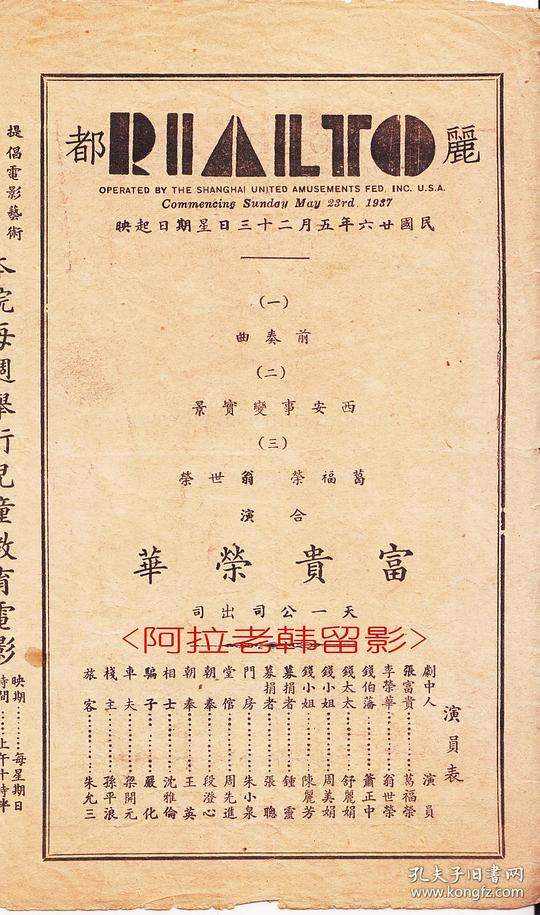 麗都
RIALTO
OPERATED BY THE SHANGHAI UNITED AMUSEMENTS FED, INC. U.S.A.
Commencing Sunday May 23rd. 1937
民國廿六年五月二十三日星期日起映
(一)
前奏曲
(二)
西安事變實景
(三)
葛福榮 翁世榮
合演
富貴榮華
天一公司出司
<阿拉老韩留影>
演員表
劇中人 演員
張富貴 葛福榮
李榮華 翁世榮
錢伯藩 蕭正中
錢太太 舒麗娟
錢小姐 周美娟
錢小姐 陳麗芳
募捐者 鍾靈
募捐者 張聰
門房 朱小泉
堂倌 周先進
朝奉 段澄心
朝奉 王英
相士 沈雅倫
騙子 嚴化
車夫 梁開元
棧主 孫平浪
旅客 朱允三
提倡電影藝術
本院每週舉行兒童教育電影
映期………每星期日
時間……上午十時半
孔夫子旧书网
www.kongfz.com